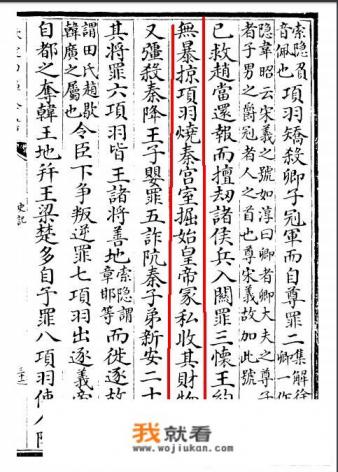 索隱負
音佩也
項羽矯殺卿子冠軍而自尊罪二
集解徐
卿一作
隱韋昭云宋義之號如淳曰卿者卿大夫之尊子
者子男之爵冠者人之首也尊宋義故加此號
已救趙當還報而擅刼諸侯兵入關罪三懷王約
無暴掠項羽燒秦宮室掘始皇帝冢私收其財物
又彊殺秦降王子嬰罪五詐阬秦子弟新安二十
其將罪六項羽皆王諸將善地
索隱謂
章邯等
而徙逐故
謂田氏趙歇
韓廣之屬也
令臣下争叛逆罪七項羽出逐義帝
自都之奪韓王地并王梁楚多自予罪八項羽使人陰
史記
我就看
www.wojiukan.com